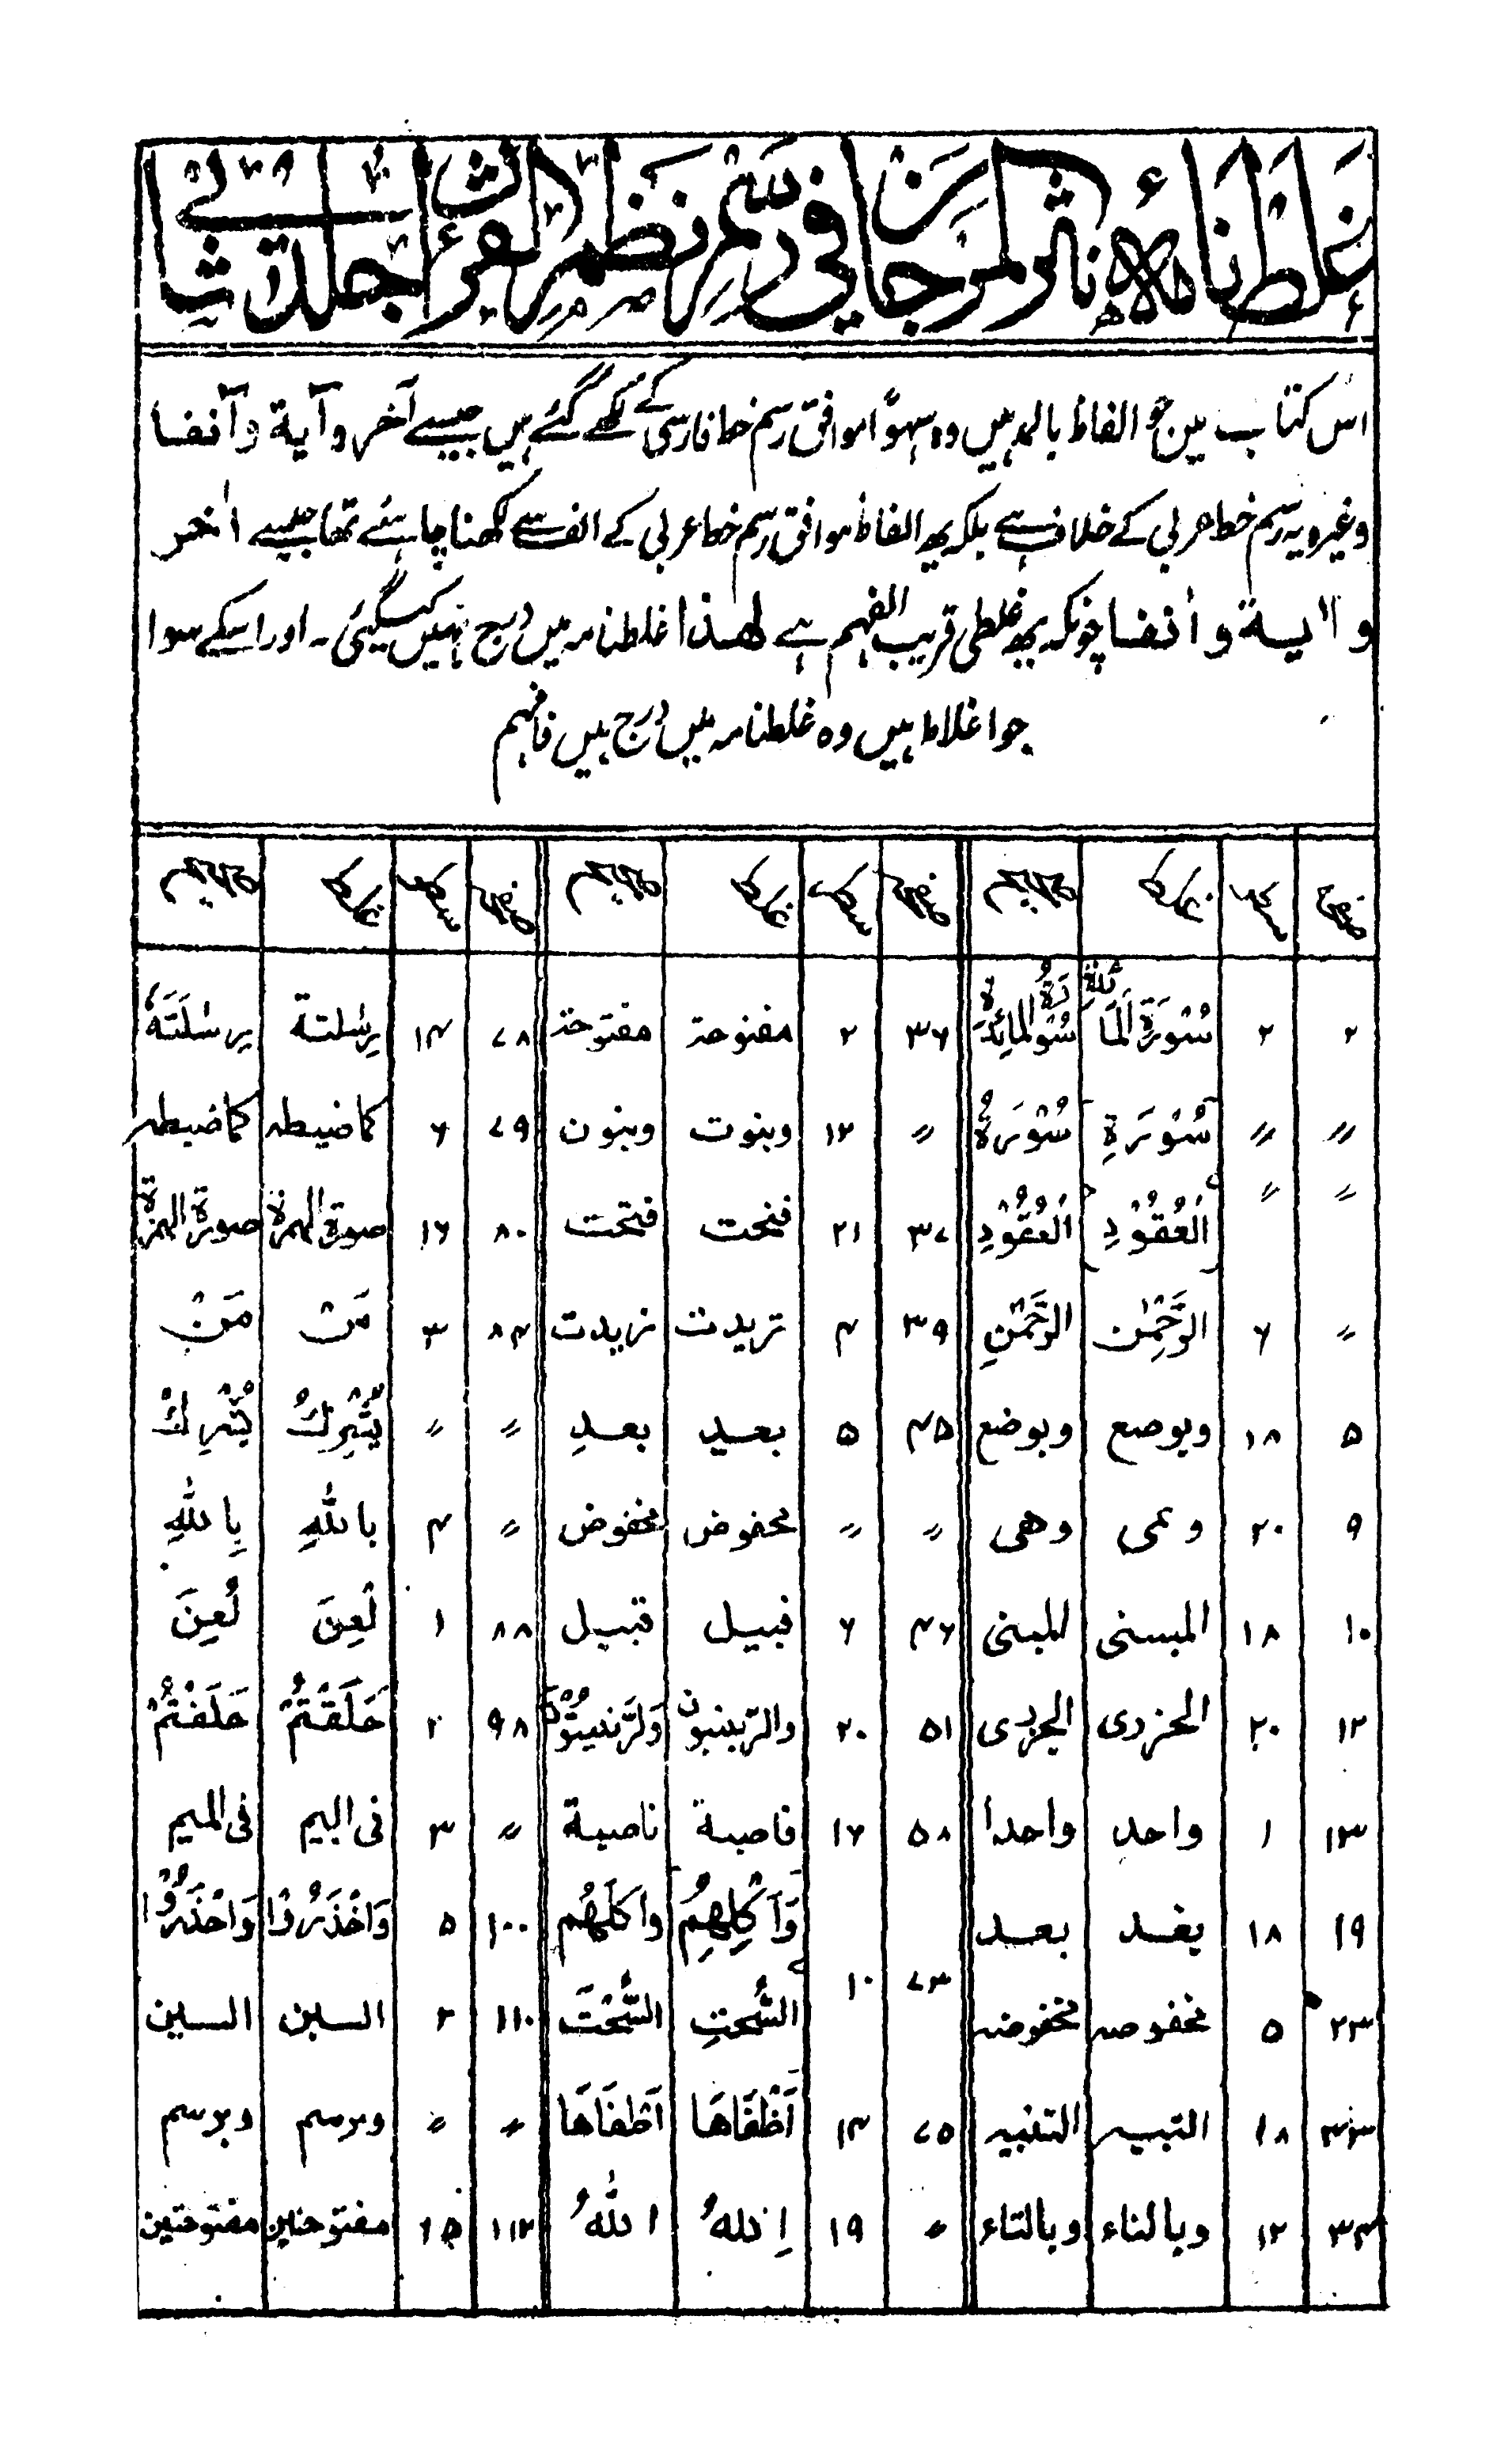 غلطنامهٔ نثر المرجان فی رسم نظم القرآن جلد ثانی
اس کتاب مین جو الفاظ بالمد ہیں وہ سہوًا موافق رسم خط فارسی کے لکھے گئے ہیں جیسے آخر و آیة و آنفا
وغیرہ یہ رسم خط عربی کے خلاف ہے بلکہ یھ الفاظ موافق رسم خط عربی کے الف سے لکھنا چاہئے تھا جیسے اٰخر
و اٰیة و اٰنفا چونکہ یھ غلطی قریب الفہم ہے لھذا غلطنامہ میں درج نہیں کیگئی۔ اور اسکے سوا
جو اغلاط ہیں وہ غلطنامہ میں درج ہیں فافہم
صفحہ سطر غلط صحیح صفحہ سطر غلط صحیح صفحہ سطر غلط صحیح
۲ ۲ سُوْرَةِ الْمَائِدَةِ سُوْرَةُ الْمَائِدَةِ ۳۶ ۲ مفنوحة مفتوحة ۷۸ ۱۴ برسلتة برسلَتَهٗ
〃 〃 سُوْرَةِ سُوْرَةُ 〃 ۱۲ وبنوت وبنون ۷۹ ۶ کماضیطہ کماضبطہ
〃 〃 اَلْعُقُوْدِ اَلْعُقُوْدِ ۳۷ ۲۱ فنحت فتحت ۸۰ ۱۶ صورة الهمزة صورة الهمزة
〃 ۶ الرَّحْمٰن الرَّحْمٰنِ ۳۹ ۴ تریدت زیدت ۸۴ ۳ مَن مَنْ
۵ ۱۸ ویوصع ویوضع ۴۵ ۵ بعد بعدِ 〃 〃 یُّشْرِكُ یُّشْرِكْ
۹ ۲۰ وهمی وهی 〃 〃 محفوض مخفوض 〃 ۴ باللّٰهِ بِاللّٰهِ
۱۰ ۱۸ المبسنی المبنی ۴۶ ۶ فبیل قبیل ۸۸ ۱ لَعِنَ لُعِنَ
۱۲ ۲۰ الحزدی الجزری ۵۱ ۲۰ والرّبینبون وَالرَّبّٰنِیُّوْنَ ۹۸ ۲ حَلَقْتُمْ حَلَفْتُمْ
۱۳ ۱ واحد واحداً ۵۸ ۱۶ فاصبة ناصبة 〃 ۳ فی الیم فی المیم
۱۹ ۱۸ یغد بعد وَاَكْلِهِمُ واکلَهُم ۱۰۰ ۵ وَاخْذَرُوْا وَاحْذَرُوْا
۲۳ ۵ مخفوصه مخفوضه ۷۳ ۱۰ السُّحْتِ السُّحْتَ ۱۱۰ ۲ السبن السین
۳۳ ۱۸ التبیہ ۷۵ ۱۴ اَطْفَاَهَا اَطْفَاَهَا 〃 〃 ومرسم وبرسم
۳۴ ۱۲ وبالناء وبالتاء 〃 ۱۹ اِنلهُ اللّٰهُ ۱۱۲ ۱۵ مفتوحنین مفتوحتین